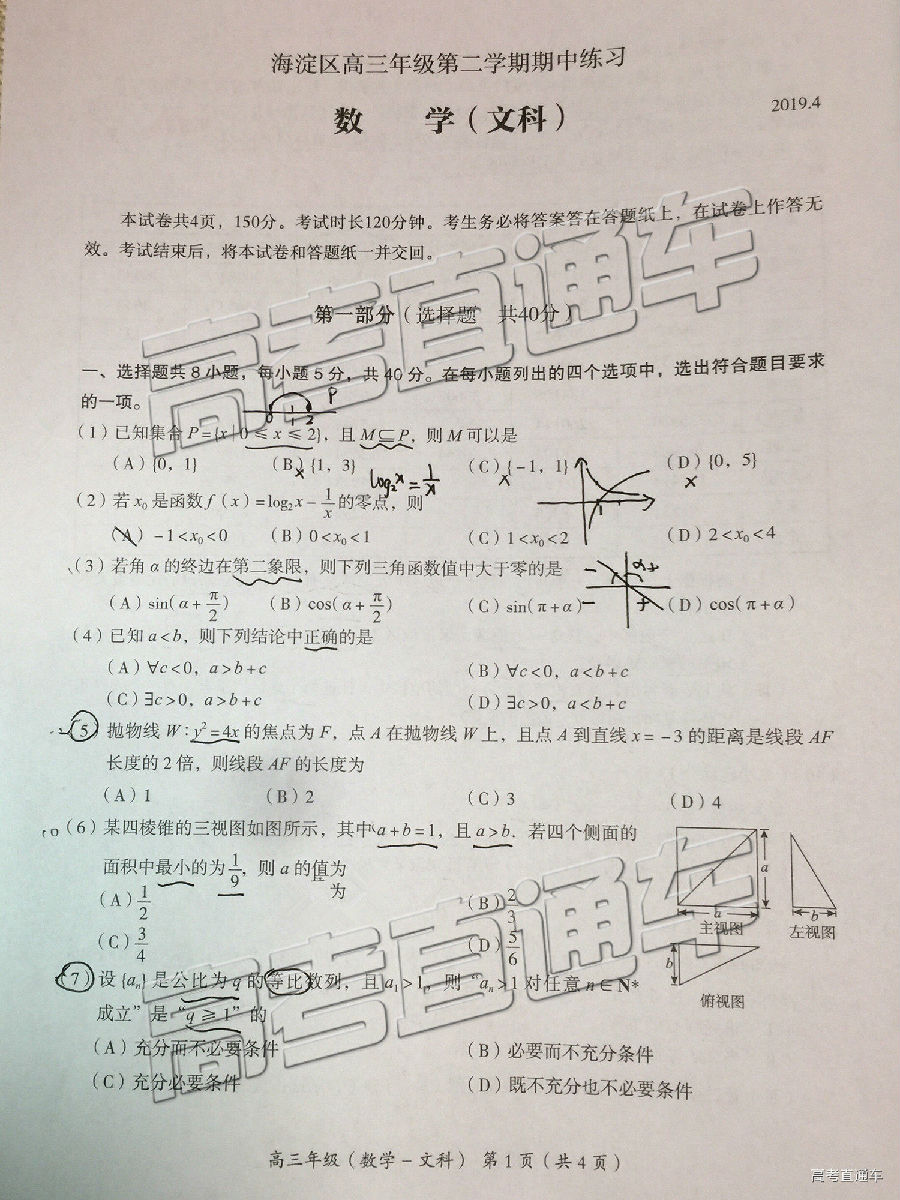 海淀区高三年级第二学期期中练习
数 学（文科）
2019.4
本试卷共4页，150分。考试时长120分钟。考生务必将答案答在答题纸上，在试卷上作答无
效。考试结束后，将本试卷和答题纸一并交回。
第一部分（选择题 共40分）
一、选择题共8小题，每小题5分，共40分。在每小题列出的四个选项中，选出符合题目要求
的一项。
0 1 2 P
（1）已知集合P={x|0≤x≤2}，且M⊆P，则M可以是
（A）{0，1} （B）{1，3} （C）{-1，1} （D）{0，5}
x x x
log₂x = 1/x
（2）若x₀是函数f（x）=log₂x-1/x的零点，则
（A）-1<x₀<0 （B）0<x₀<1 （C）1<x₀<2 （D）2<x₀<4
（3）若角α的终边在第二象限，则下列三角函数值中大于零的是
（A）sin(α+π/2) （B）cos(α+π/2) （C）sin(π+α) （D）cos(π+α)
（4）已知a<b，则下列结论中正确的是
（A）∀c<0，a>b+c （B）∀c<0，a<b+c
（C）∃c>0，a>b+c （D）∃c>0，a<b+c
（5）抛物线W：y²=4x的焦点为F，点A在抛物线W上，且点A到直线x=-3的距离是线段AF
长度的2倍，则线段AF的长度为
（A）1 （B）2 （C）3 （D）4
（6）某四棱锥的三视图如图所示，其中a+b=1，且a>b．若四个侧面的
面积中最小的为1/9，则a的值为
为
（A）1/2 （B）2/3
（C）3/4 （D）5/6
a
a
主视图
b
左视图
b
俯视图
（7）设{aₙ}是公比为q的等比数列，且a₁>1，则“aₙ>1对任意n∈N*
成立”是“q≥1”的
（A）充分而不必要条件 （B）必要而不充分条件
（C）充分必要条件 （D）既不充分也不必要条件
高三年级（数学-文科） 第1页（共4页）
高考直通车
高考直通车
高考直通车